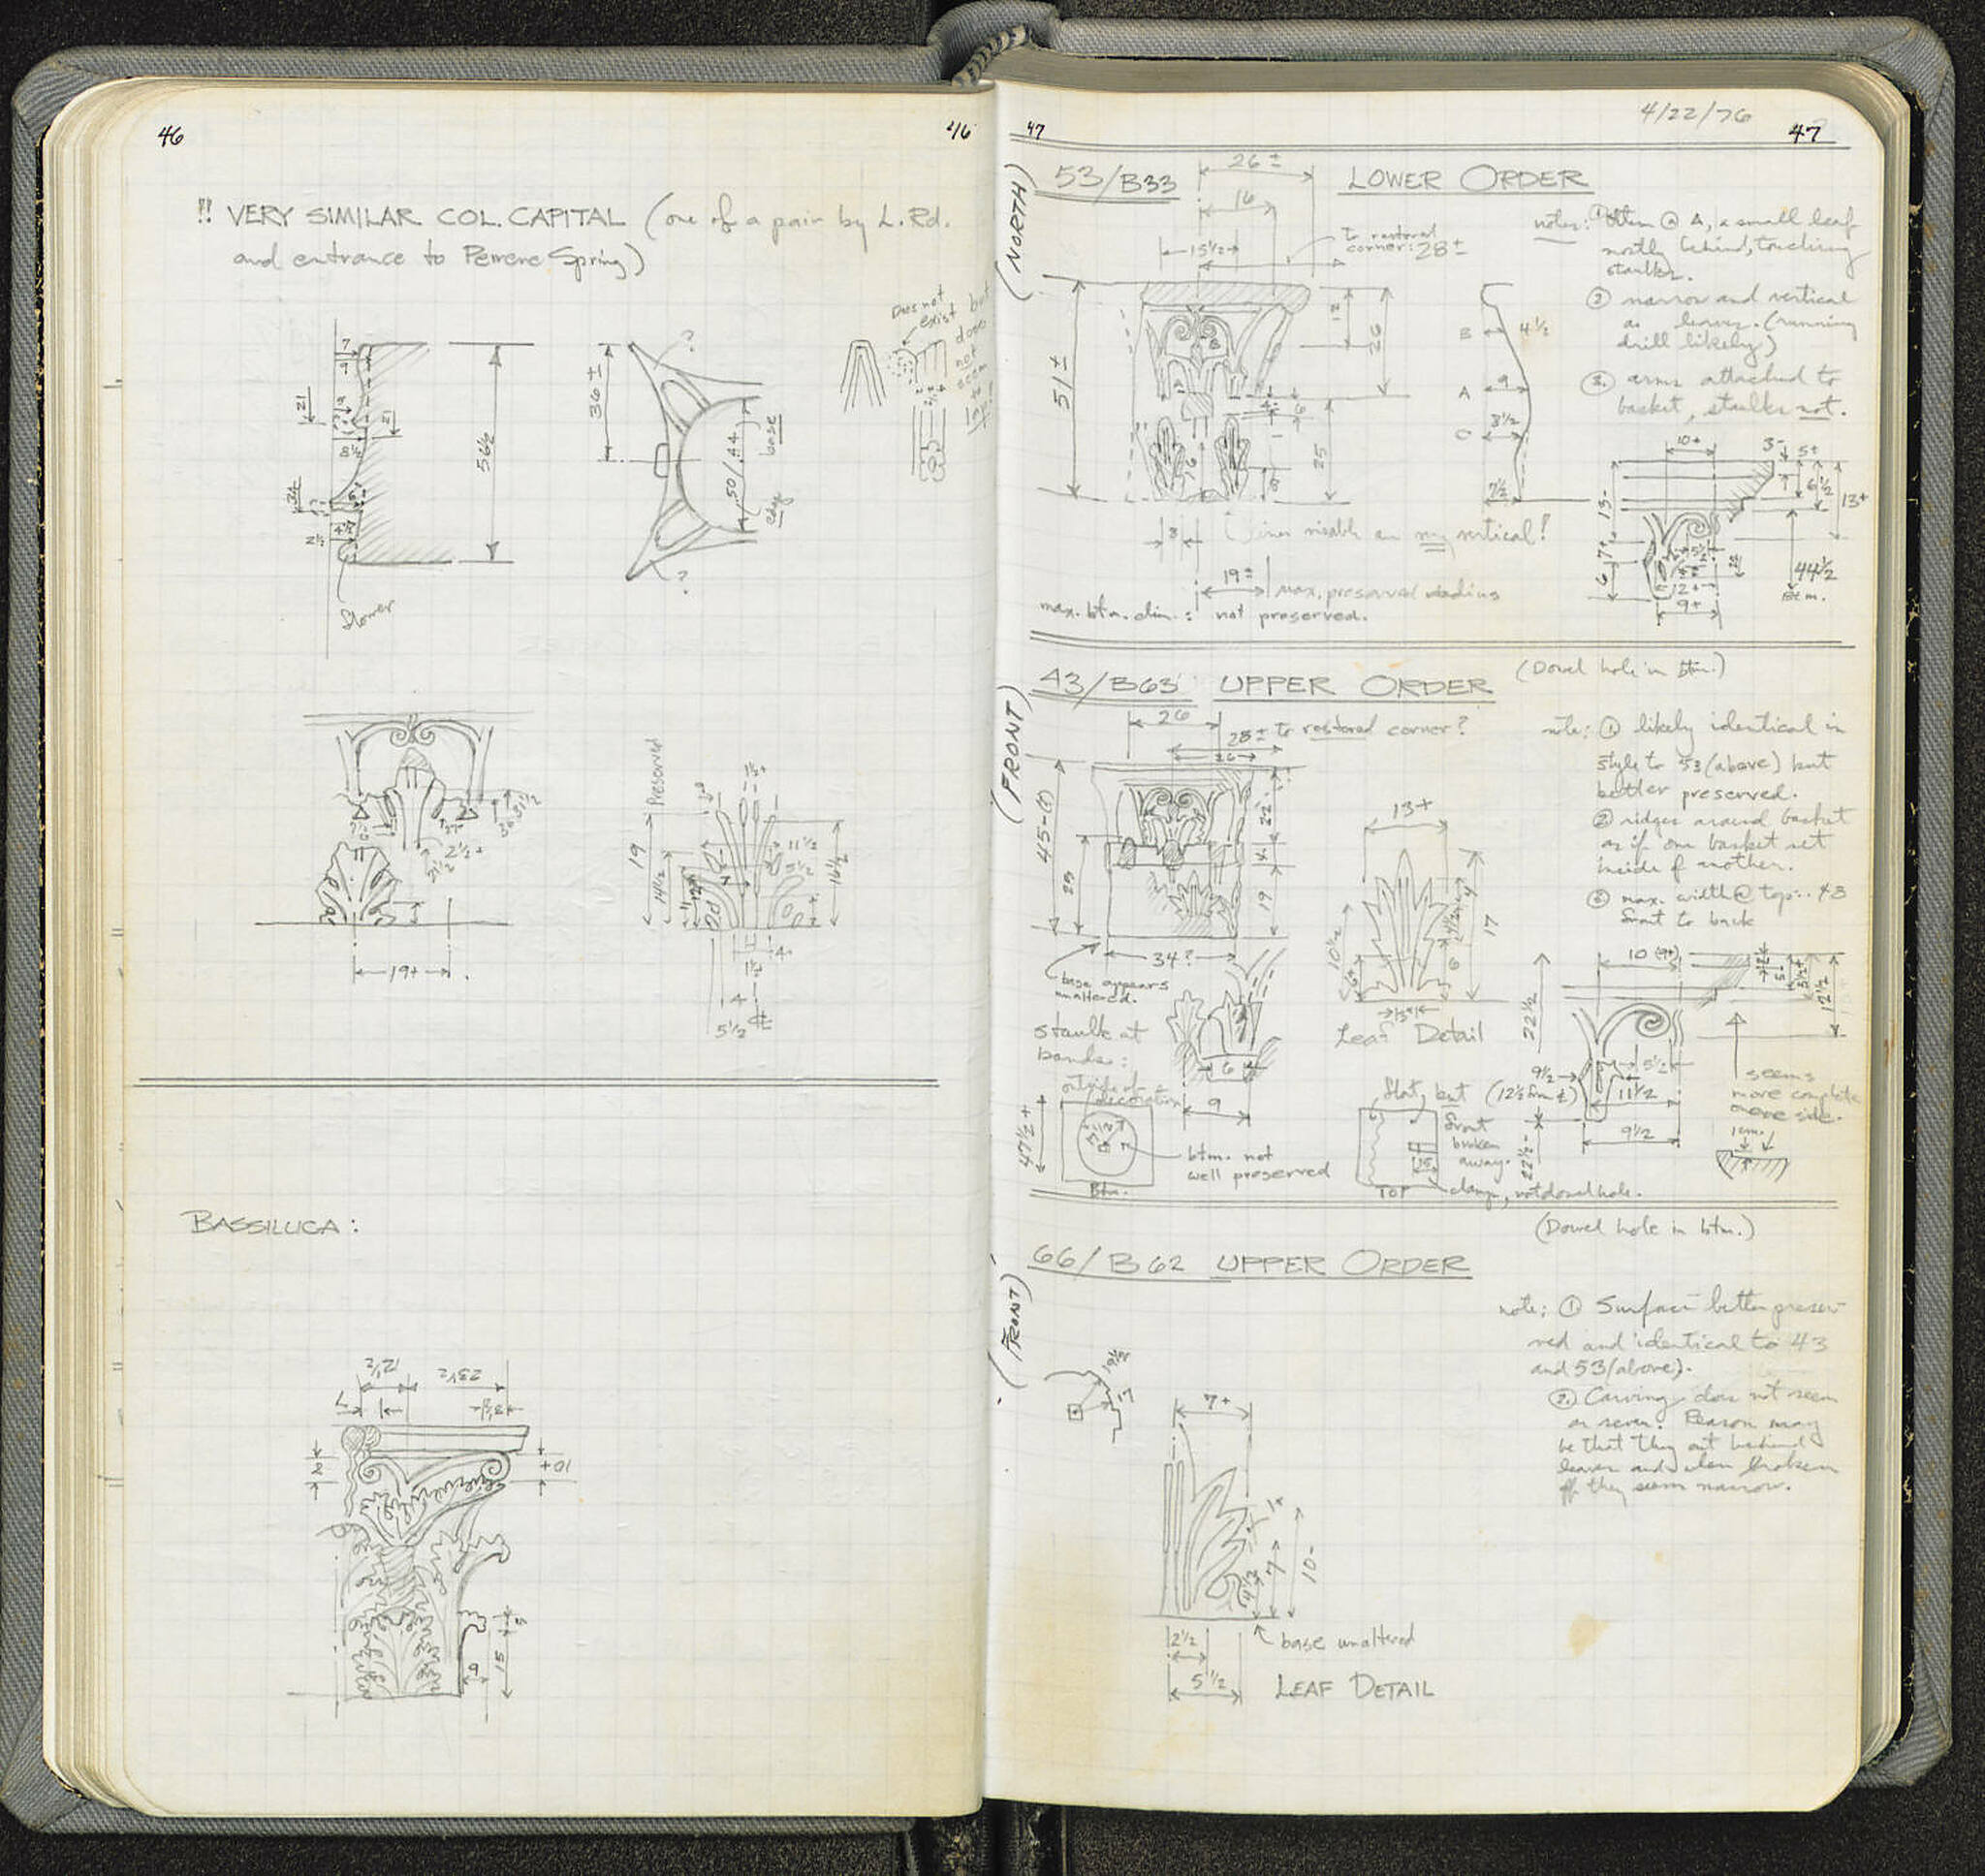 46
46
!! VERY SIMILAR COL. CAPITAL (one of a pair by L. Rd.
and entrance to Peirene Spring)
Does not
exist but
does
not
seem
to
7
21
21
8½
36±
56½
50/44
base
edge
?
?
flower
Preserved
19
14½
16½
11½
5½
2½+
19+
1½
4
4
5½
BASSILUCA:
12½
23½
7
10+
15
9
47
4/22/76
47
(NORTH)
53/B33
LOWER ORDER
26±
16
15½
to restored
corner: 28±
51±
12
26
25
16
8
8
19±
max. preserved radius
max. btm. dim.: not preserved.
lines visable on my vertical!
B
4½
A
9
C
8½
7½
notes: ① Often @ A, a small leaf
mostly behind, touching
staulks.
② narrow and vertical
as leaves. (running
drill likely)
③ arms attached to
basket, staulks not.
10+
3-
5+
7
6½
13+
13-
7+
6
2+
9+
44½
Btm.
(Dowel hole in btm.)
(FRONT)
43/B63 UPPER ORDER
26
28± to restored corner?
26
45-(?)
25
22-
4-
19
34?
base appears
unaltered.
staulk at
bands:
6
9
outside of
decoration
47½+
Btm.
btm. not
well preserved
13+
10½
17
6
Leaf Detail
flat, but
front
broken
away.
TOP
clamp, not dowel hole.
note: ① likely identical in
style to 53 (above) but
better preserved.
② ridges around basket
as if one basket set
inside of another.
③ max. width @ top: 43
front to back
10 (9+)
5-
5½+
12½
22½
9½
(12½ from ℄)
5½
11½
9½
22½-
seems
more complete
one side.
1cm.
(Dowel hole in btm.)
(FRONT)
66/B62 UPPER ORDER
note: ① Surface better preser-
ved and identical to 43
and 53 (above).
② Carving does not seem
as seven. Reason may
be that they cut behind
leaves and when broken
off they seem narrow.
19½
17
7+
4½
7
10-
2½
5½
base unaltered
LEAF DETAIL